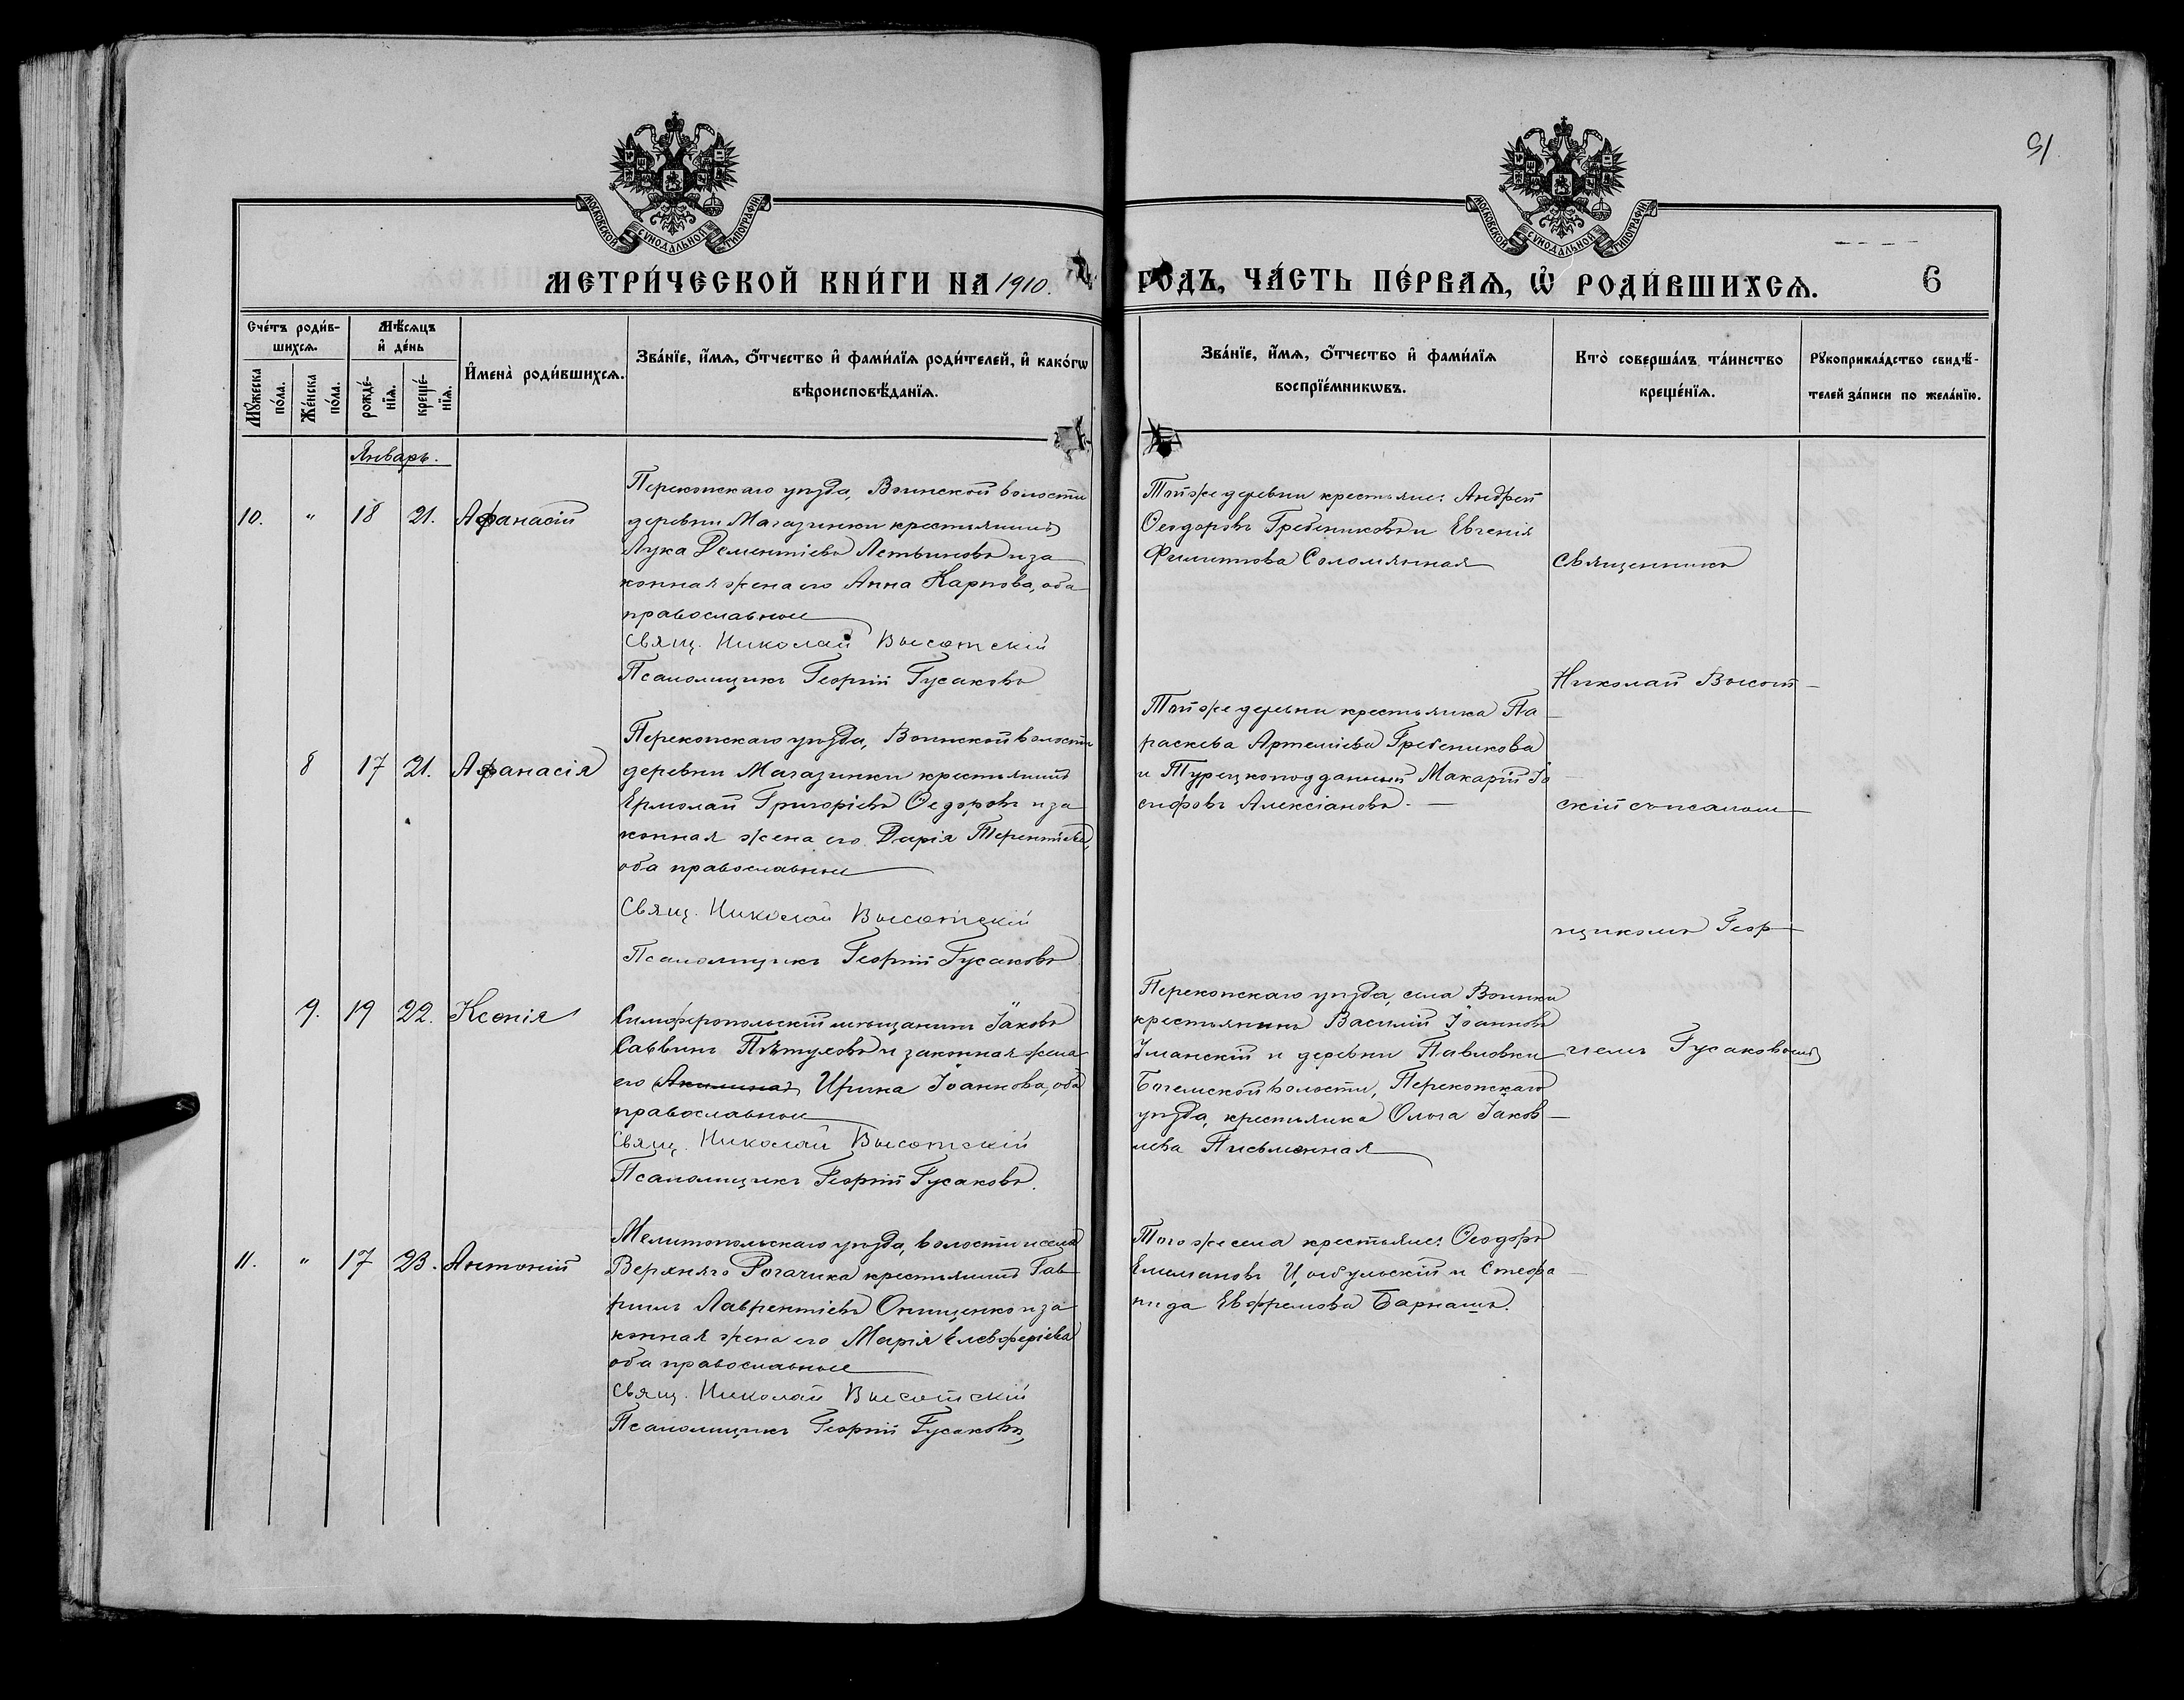 51
МОСКОВСКОЙ СѴНОДАЛЬНОЙ ТИПОГРАФІИ
МОСКОВСКОЙ СѴНОДАЛЬНОЙ ТИПОГРАФІИ
МЕТРИ́ЧЕСКОЙ КНИ́ГИ НА 1910.
ГО́ДЪ, ЧА́СТЬ ПЕ́РВАѦ, Ѡ҆ РОДИ́ВШИХСѦ.
6
Сче́тъ роди́в-
шихсѧ.
Мꙋ́жеска по́ла.
Же́нска по́ла.
Мѣ́сѧцъ
и҆ де́нь
рожде́-
нїѧ.
креще́-
нїѧ.
И҆мена̀ роди́вшихсѧ.
Зва́нїе, и҆́мѧ, ѻ҆́тчество и҆ фами́лїѧ роди́телей, и҆ како́гѡ
вѣроисповѣ́данїѧ.
Зва́нїе, и҆́мѧ, ѻ҆́тчество и҆ фами́лїѧ
воспрїе́мникѡвъ.
Кто̀ соверша́лъ та́инство
креще́нїѧ.
Рꙋкоприкла́дство свидѣ́-
телей за́писи по жела́нїю.
Январь.
10. " 18 21. Афанасій
Перекопскаго уѣзда, Воинской волости
деревни Магазинки крестьянинъ
Лука Дементіевъ Летьиновъ и за
конная жена его Анна Карпова, оба
православные
Свящ. Николай Высотскій
Псаломщикъ Георгій Гусаковъ
Той же деревни крестьяне: Андрей
Ѳеодоровъ Гребениковъ и Евгенія
Филиппова Соломянная
8 17 21. Афанасія
Перекопскаго уѣзда, Воинской волости
деревни Магазинки крестьянинъ
Ермолай Григоріевъ Ѳедоровъ и за
конная жена его Дарія Терентіева,
оба православные
Свящ. Николай Высотскій
Псаломщикъ Георгій Гусаковъ
Той же деревни крестьянка Па
раскева Артеміева Гребеникова
и Турецкоподданный Макарій Іо
сифовъ Алексіановъ.
9. 19 22. Ксенія
Симферопольскій мѣщанинъ Іаковъ
Саввинъ Пѣтуховъ и законная жена
его Акилина Ирина Іоаннова, оба
православные
Свящ. Николай Высотскій
Псаломщикъ Георгій Гусаковъ.
Перекопскаго уѣзда, села Воинки
крестьянинъ Василій Іоанновъ
Уманскій и деревни Павловки
Богемской волости, Перекопскаго
уѣзда, крестьянка Ольга Іаков
лева Письменная
11. " 17 23. Антоній
Мелитопольскаго уѣзда, волости и села
Верхняго Рогачика крестьянинъ Гав
риилъ Лаврентіевъ Онищенко и за
конная жена его Марія Елевферіева
оба православные
Свящ. Николай Высотскій
Псаломщикъ Георгій Гусаковъ
Того же села крестьяне: Ѳеодоръ
Емиліановъ Цыбульскій и Стефа
нида Евфремова Барнашъ.
Священникъ
Николай Высот
скій съ псалом
щикомъ Геор
гіемъ Гусаковымъ